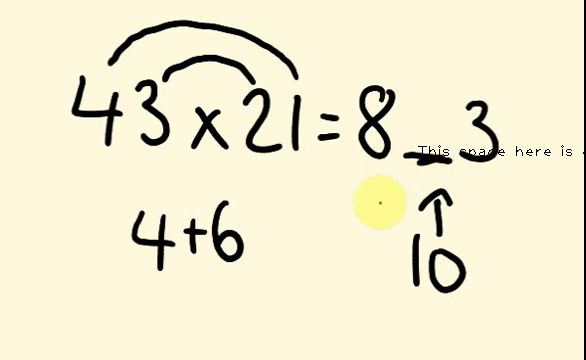 43 x 21 = 8 _ 3
This space here is
4+6
10